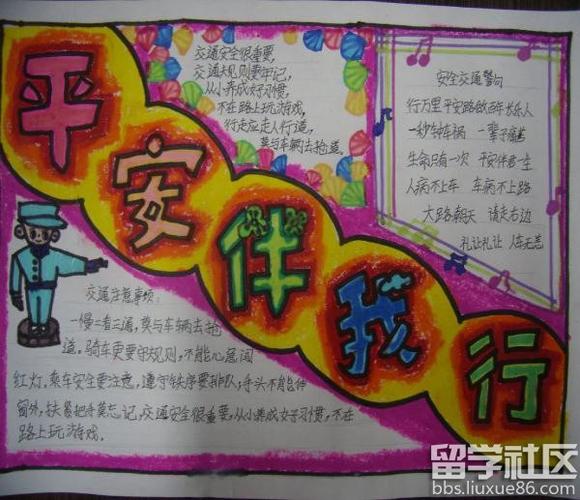 平安伴我行
交通安全很重要,
交通规则要牢记,
从小养成好习惯,
不在路上玩游戏,
行走应走人行道,
莫与车辆去抢道。
安全交通警句
行万里平安路做百年长乐人
一秒钟车祸 一辈子痛苦
生命只有一次 平安伴君一生
人病不上车 车病不上路
大路朝天 请走右边
礼让礼让 人车无恙
交通注意事项:
一慢二看三通,莫与车辆去抢
道。骑车更要守规则,不能心急闯
红灯。乘车安全要注意,遵守秩序要排队,手头不能伸
窗外,扶紧把手莫忘记,交通安全很重要,从小养成好习惯,不在
路上玩游戏。
留学社区
bbs.liuxue86.com